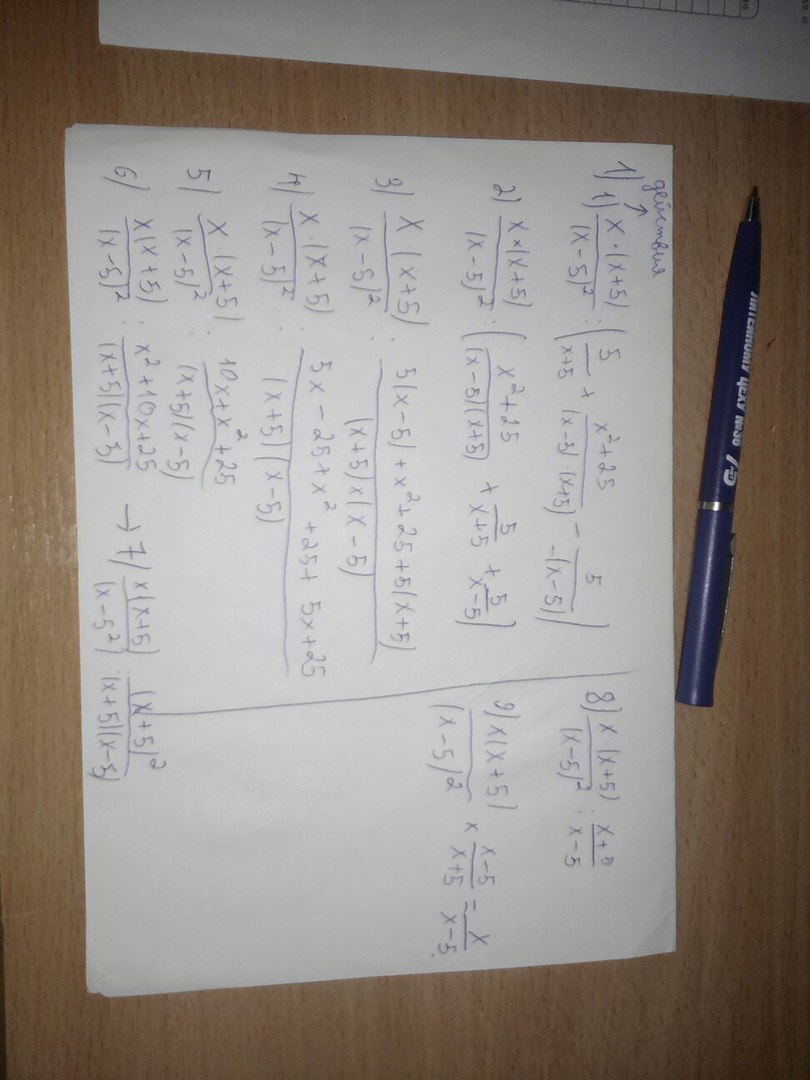 действия
↑
1) 1) x·(x+5)/(x-5)² : (5/(x+5) + (x²+25)/((x-5)·(x+5)) - 5/(-(x-5)))
2) x×(x+5)/(x-5)² : ((x²+25)/((x-5)(x+5)) + 5/(x+5) + 5/(x-5))
3) x·(x+5)/(x-5)² : (5(x-5)+x²+25+5(x+5))/((x+5)×(x-5))
4) x·(x+5)/(x-5)² : (5x-25+x²+25+5x+25)/((x+5)(x-5))
5) x·(x+5)/(x-5)² : (10x+x²+25)/((x+5)(x-5))
6) x(x+5)/(x-5)² : (x²+10x+25)/((x+5)(x-5)) → 7) x(x+5)/(x-5²) : (x+5)²/((x+5)(x-5))
8) x(x+5)/(x-5)² : (x+5)/(x-5)
9) x(x+5)/(x-5)² × (x-5)/(x+5) = x/(x-5).
ЛИТЕЙНОМУ ЦЕХУ №36 75 лет